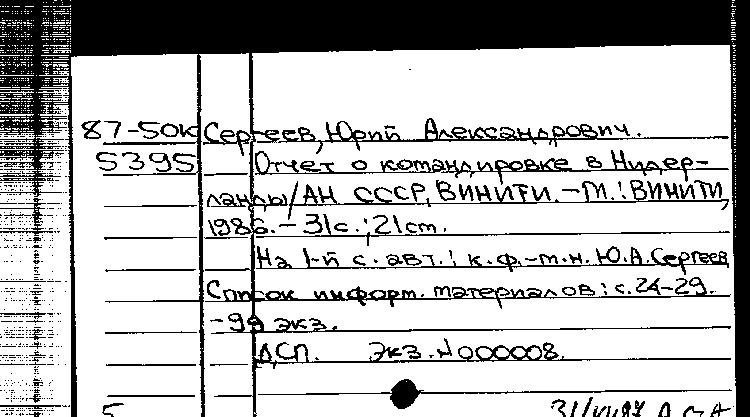 87-50к Сергеев, Юрий Александрович.
5395 Отчет о командировке в Нидер-
ланды/АН СССР, ВИНИТИ. - М.: ВИНИТИ,
1986. - 31с.; 21см.
На 1-й с. авт.: к.ф.-м.н. Ю.А.Сергеев
Список информ. материалов: с.24-29.
-99 экз.
ДСП. Экз. N000008.
5